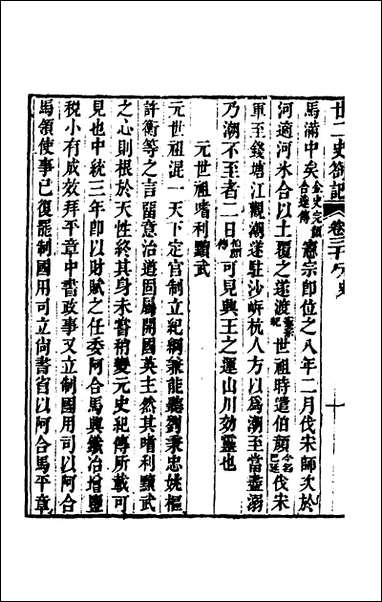 廿二史劄記 卷三十 元史
馬滿中矣金史完顏合達傳憲宗即位之八年二月伐宋師次於
河適河水合以土覆之遂渡憲宗紀世祖時遣伯顏今名巴延伐宋
軍至錢塘江觀潮遂駐沙岍杭人方以為潮至當盡溺
乃潮不至者二日伯顏傳可見興王之運山川効靈也
元世祖嗜利黷武
元世祖混一天下定官制立紀綱兼能聽劉秉忠姚樞
許衡等之言留意治道固屬開國英主然其嗜利黷武
之心則根於天性終其身未嘗稍變元史紀傳所載可
見也中統三年即以財賦之任委阿合馬興鐵冶增鹽
稅小有成效拜平章中書政事又立制國用司以阿合
馬領使事已復罷制國用司立尚書省以阿合馬平章